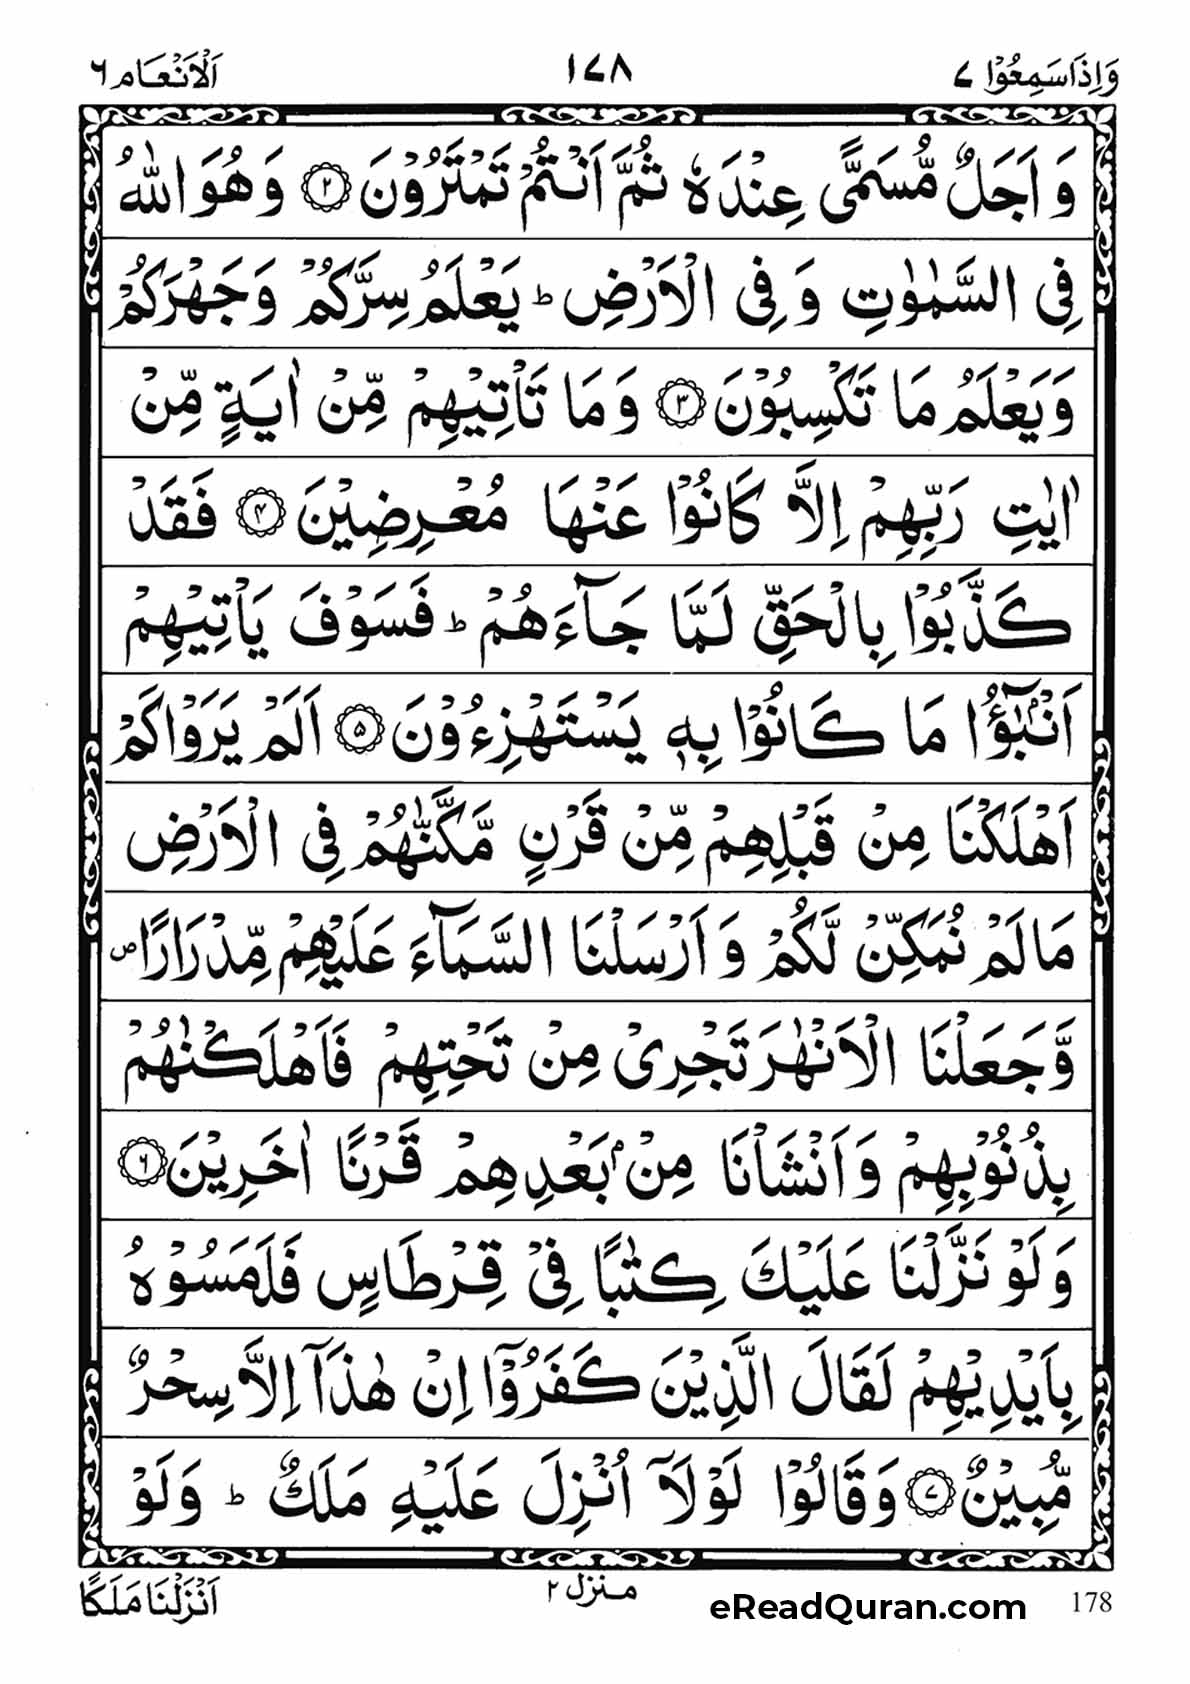 وَاِذَا سَمِعُوْا ۷ ۱۷۸ اَلْاَنْعَام ۶
وَ اَجَلٌ مُّسَمًّى عِنْدَهٗ ثُمَّ اَنْتُمْ تَمْتَرُوْنَ ۲ وَ هُوَ اللّٰهُ
فِی السَّمٰوٰتِ وَ فِی الْاَرْضِ ؕ یَعْلَمُ سِرَّكُمْ وَ جَهْرَكُمْ
وَ یَعْلَمُ مَا تَكْسِبُوْنَ ۳ وَ مَا تَاْتِیْهِمْ مِّنْ اٰیَةٍ مِّنْ
اٰیٰتِ رَبِّهِمْ اِلَّا كَانُوْا عَنْهَا مُعْرِضِیْنَ ۴ فَقَدْ
كَذَّبُوْا بِالْحَقِّ لَمَّا جَآءَهُمْ ؕ فَسَوْفَ یَاْتِیْهِمْ
اَنْۢبٰٓؤُا مَا كَانُوْا بِهٖ یَسْتَهْزِءُوْنَ ۵ اَلَمْ یَرَوْا كَمْ
اَهْلَكْنَا مِنْ قَبْلِهِمْ مِّنْ قَرْنٍ مَّكَّنّٰهُمْ فِی الْاَرْضِ
مَا لَمْ نُمَكِّنْ لَّكُمْ وَ اَرْسَلْنَا السَّمَآءَ عَلَیْهِمْ مِّدْرَارًا ص
وَّ جَعَلْنَا الْاَنْهٰرَ تَجْرِیْ مِنْ تَحْتِهِمْ فَاَهْلَكْنٰهُمْ
بِذُنُوْبِهِمْ وَ اَنْشَاْنَا مِنْۢ بَعْدِهِمْ قَرْنًا اٰخَرِیْنَ ۶
وَ لَوْ نَزَّلْنَا عَلَیْكَ كِتٰبًا فِیْ قِرْطَاسٍ فَلَمَسُوْهُ
بِاَیْدِیْهِمْ لَقَالَ الَّذِیْنَ كَفَرُوْۤا اِنْ هٰذَاۤ اِلَّا سِحْرٌ
مُّبِیْنٌ ۷ وَ قَالُوْا لَوْلَاۤ اُنْزِلَ عَلَیْهِ مَلَكٌ ؕ وَ لَوْ
اَنْزَلْنَا مَلَكًا منزل ۲ eReadQuran.com 178